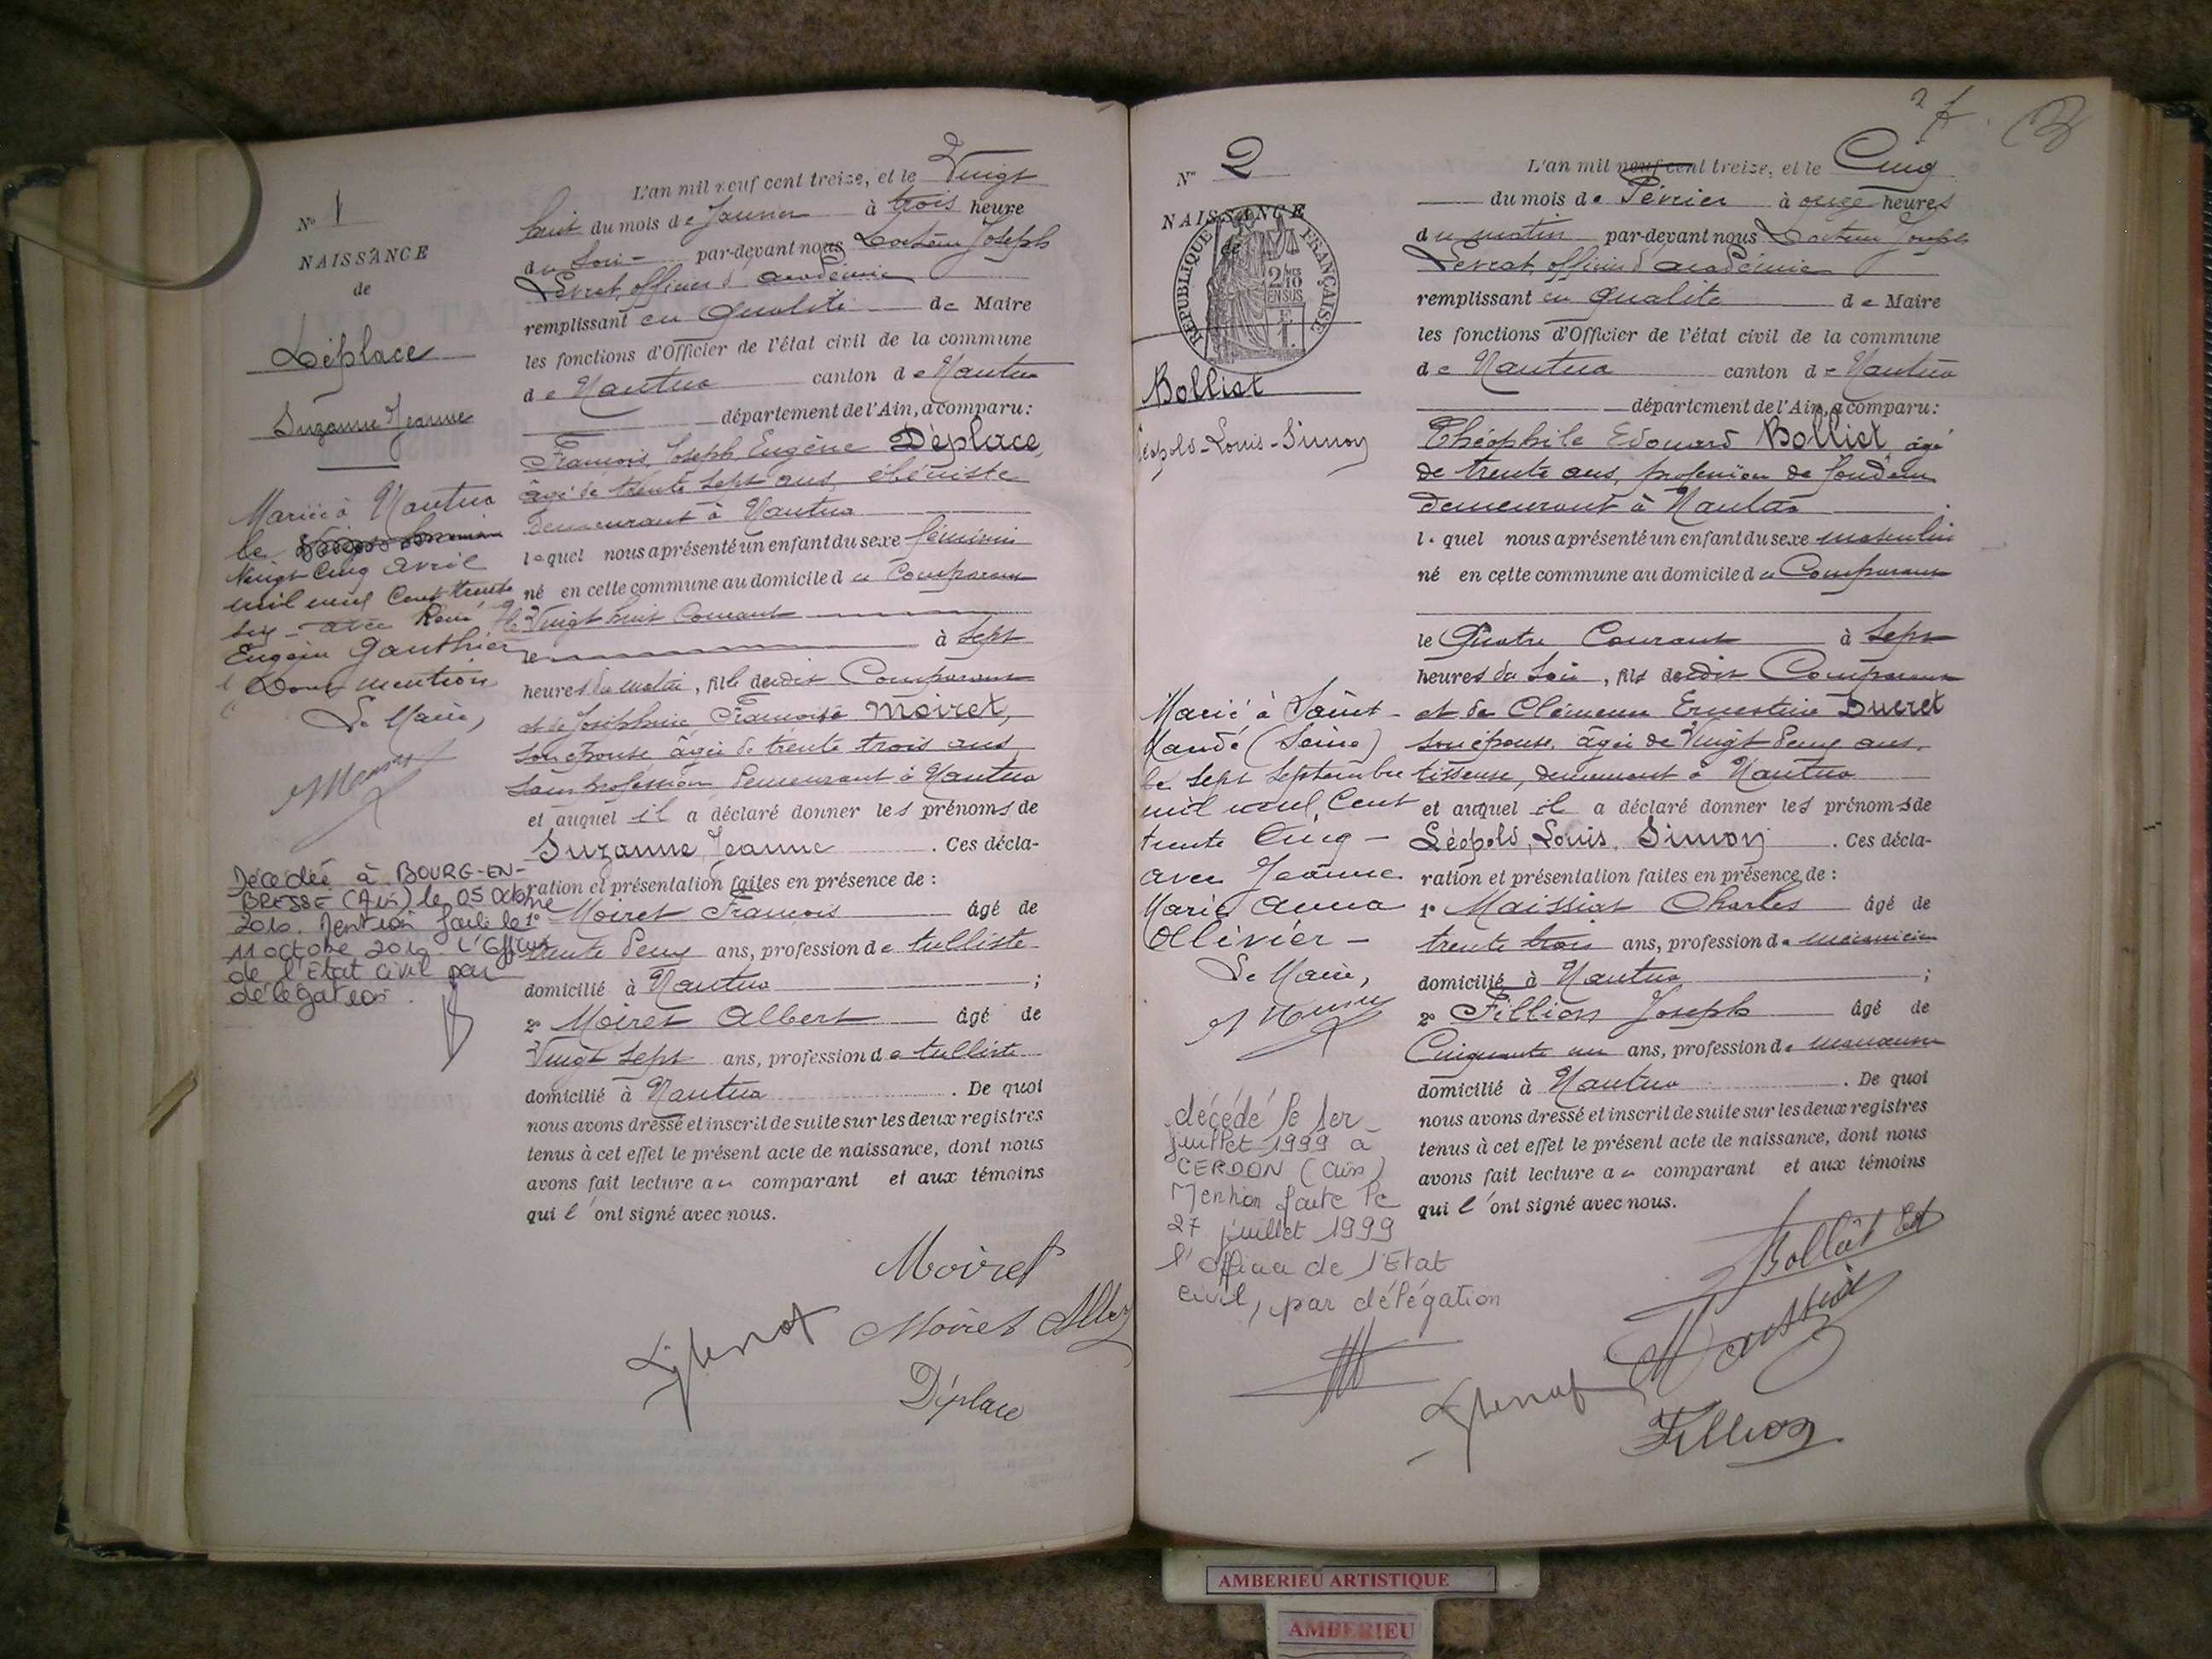 L'an mil neuf cent treize, et le Vingt
huit du mois de Janvier à trois heure
du Soir par-devant nous Docteur Joseph
Levrat, officier d'académie
remplissant en qualité de Maire
les fonctions d'Officier de l'état civil de la commune
de Nantua canton de Nantua
département de l'Ain, a comparu:
François, Joseph, Eugène Déplace,
âgé de trente sept ans, ébéniste
demeurant à Nantua
lequel nous a présenté un enfant du sexe féminin
né en cette commune au domicile du Comparant
le Vingt huit Courant
le à Sept
heures du matin, fille dudit Comparant
et de Joséphine Françoise Moiret,
son épouse âgée de trente trois ans
sans profession, demeurant à Nantua
et auquel il a déclaré donner les prénoms de
Suzanne, Jeanne. Ces décla-
ration et présentation faites en présence de:
1° Moiret François âgé de
trente deux ans, profession de tulliste
domicilié à Nantua;
2° Moiret Albert âgé de
Vingt sept ans, profession de tulliste
domicilié à Nantua. De quoi
nous avons dressé et inscrit de suite sur les deux registres
tenus à cet effet le présent acte de naissance, dont nous
avons fait lecture au comparant et aux témoins
qui l'ont signé avec nous.
Moiret
Moiret
Déplace
N° 1
NAISSANCE
de
Déplace
Suzanne Jeanne
Mariée à Nantua
le
Vingt Cinq Avril
mil neuf Cent trente
six - avec René
Eugène Gauthier
Dont mention
Le Maire,
Décédée à BOURG-EN-
BRESSE (Ain) le 05 Octobre
2010. Mention faite le
11 octobre 2010. L'Officier
de l'Etat Civil par
délégation.
N° 2
NAISSANCE
de
RÉPUBLIQUE FRANÇAISE
2/10
EN SUS
Bolliet
Léopold-Louis-Simon
Marié à Saint-
Mandé (Seine)
le sept Septembre
mil neuf Cent
trente Cinq -
avec Jeanne
Marie Anna
Ollivier -
Le Maire,
décédé le 1er
juillet 1999 à
CERDON (Ain)
Mention faite le
27 juillet 1999
l'officier de l'Etat
civil, par délégation
L'an mil neuf cent treize, et le Cinq
du mois de Février à onze heures
du matin par-devant nous Docteur Joseph
Levrat, officier d'académie
remplissant en qualité de Maire
les fonctions d'Officier de l'état civil de la commune
de Nantua canton de Nantua
département de l'Ain, a comparu:
Théophile Edouard Bolliet, âgé
de trente ans, profession de fondeur
demeurant à Nantua
lequel nous a présenté un enfant du sexe masculin
né en cette commune au domicile du Comparant
le Quatre Courant à Sept
heures du Soir, fils dudit Comparant
et de Clémence Ernestine Ducret
son épouse, âgée de Vingt deux ans,
tisseuse, demeurant à Nantua
et auquel il a déclaré donner les prénoms de
Léopold, Louis, Simon. Ces décla-
ration et présentation faites en présence de:
1° Maissiat Charles âgé de
trente trois ans, profession de mécanicien
domicilié à Nantua;
2° Fillion Joseph âgé de
Cinquante un ans, profession de manœuvre
domicilié à Nantua. De quoi
nous avons dressé et inscrit de suite sur les deux registres
tenus à cet effet le présent acte de naissance, dont nous
avons fait lecture au comparant et aux témoins
qui l'ont signé avec nous.
Maissiat
Fillion
AMBERIEU ARTISTIQUE
AMBERIEU